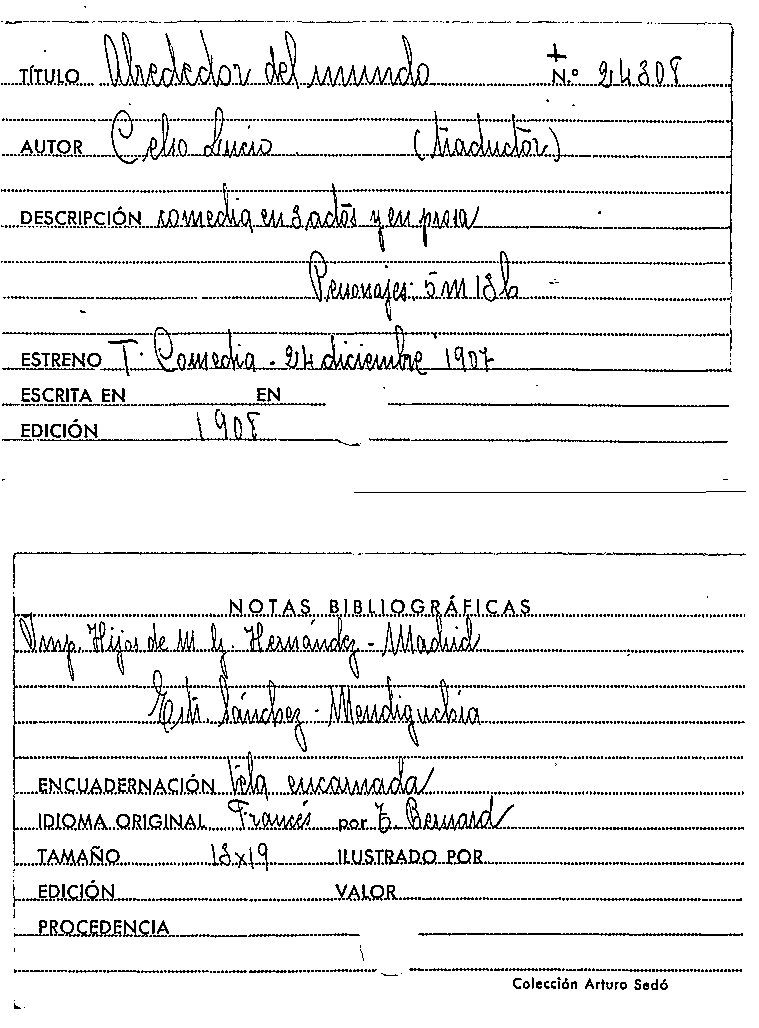 TÍTULO Alrededor del mundo N.º 24308
AUTOR Celso Lucio (traductor)
DESCRIPCIÓN comedia en 3 actos y en prosa
Personajes: 5 m 13 h
ESTRENO T. Comedia - 24 diciembre 1907
ESCRITA EN EN
EDICIÓN 1908
NOTAS BIBLIOGRÁFICAS
Imp. Hijos de M. G. Hernández - Madrid
Estr. Sánchez - Mendiguchía
ENCUADERNACIÓN tela encarnada
IDIOMA ORIGINAL Francés por T. Bernard
TAMAÑO 13x19 ILUSTRADO POR
EDICIÓN VALOR
PROCEDENCIA
Colección Arturo Sedó